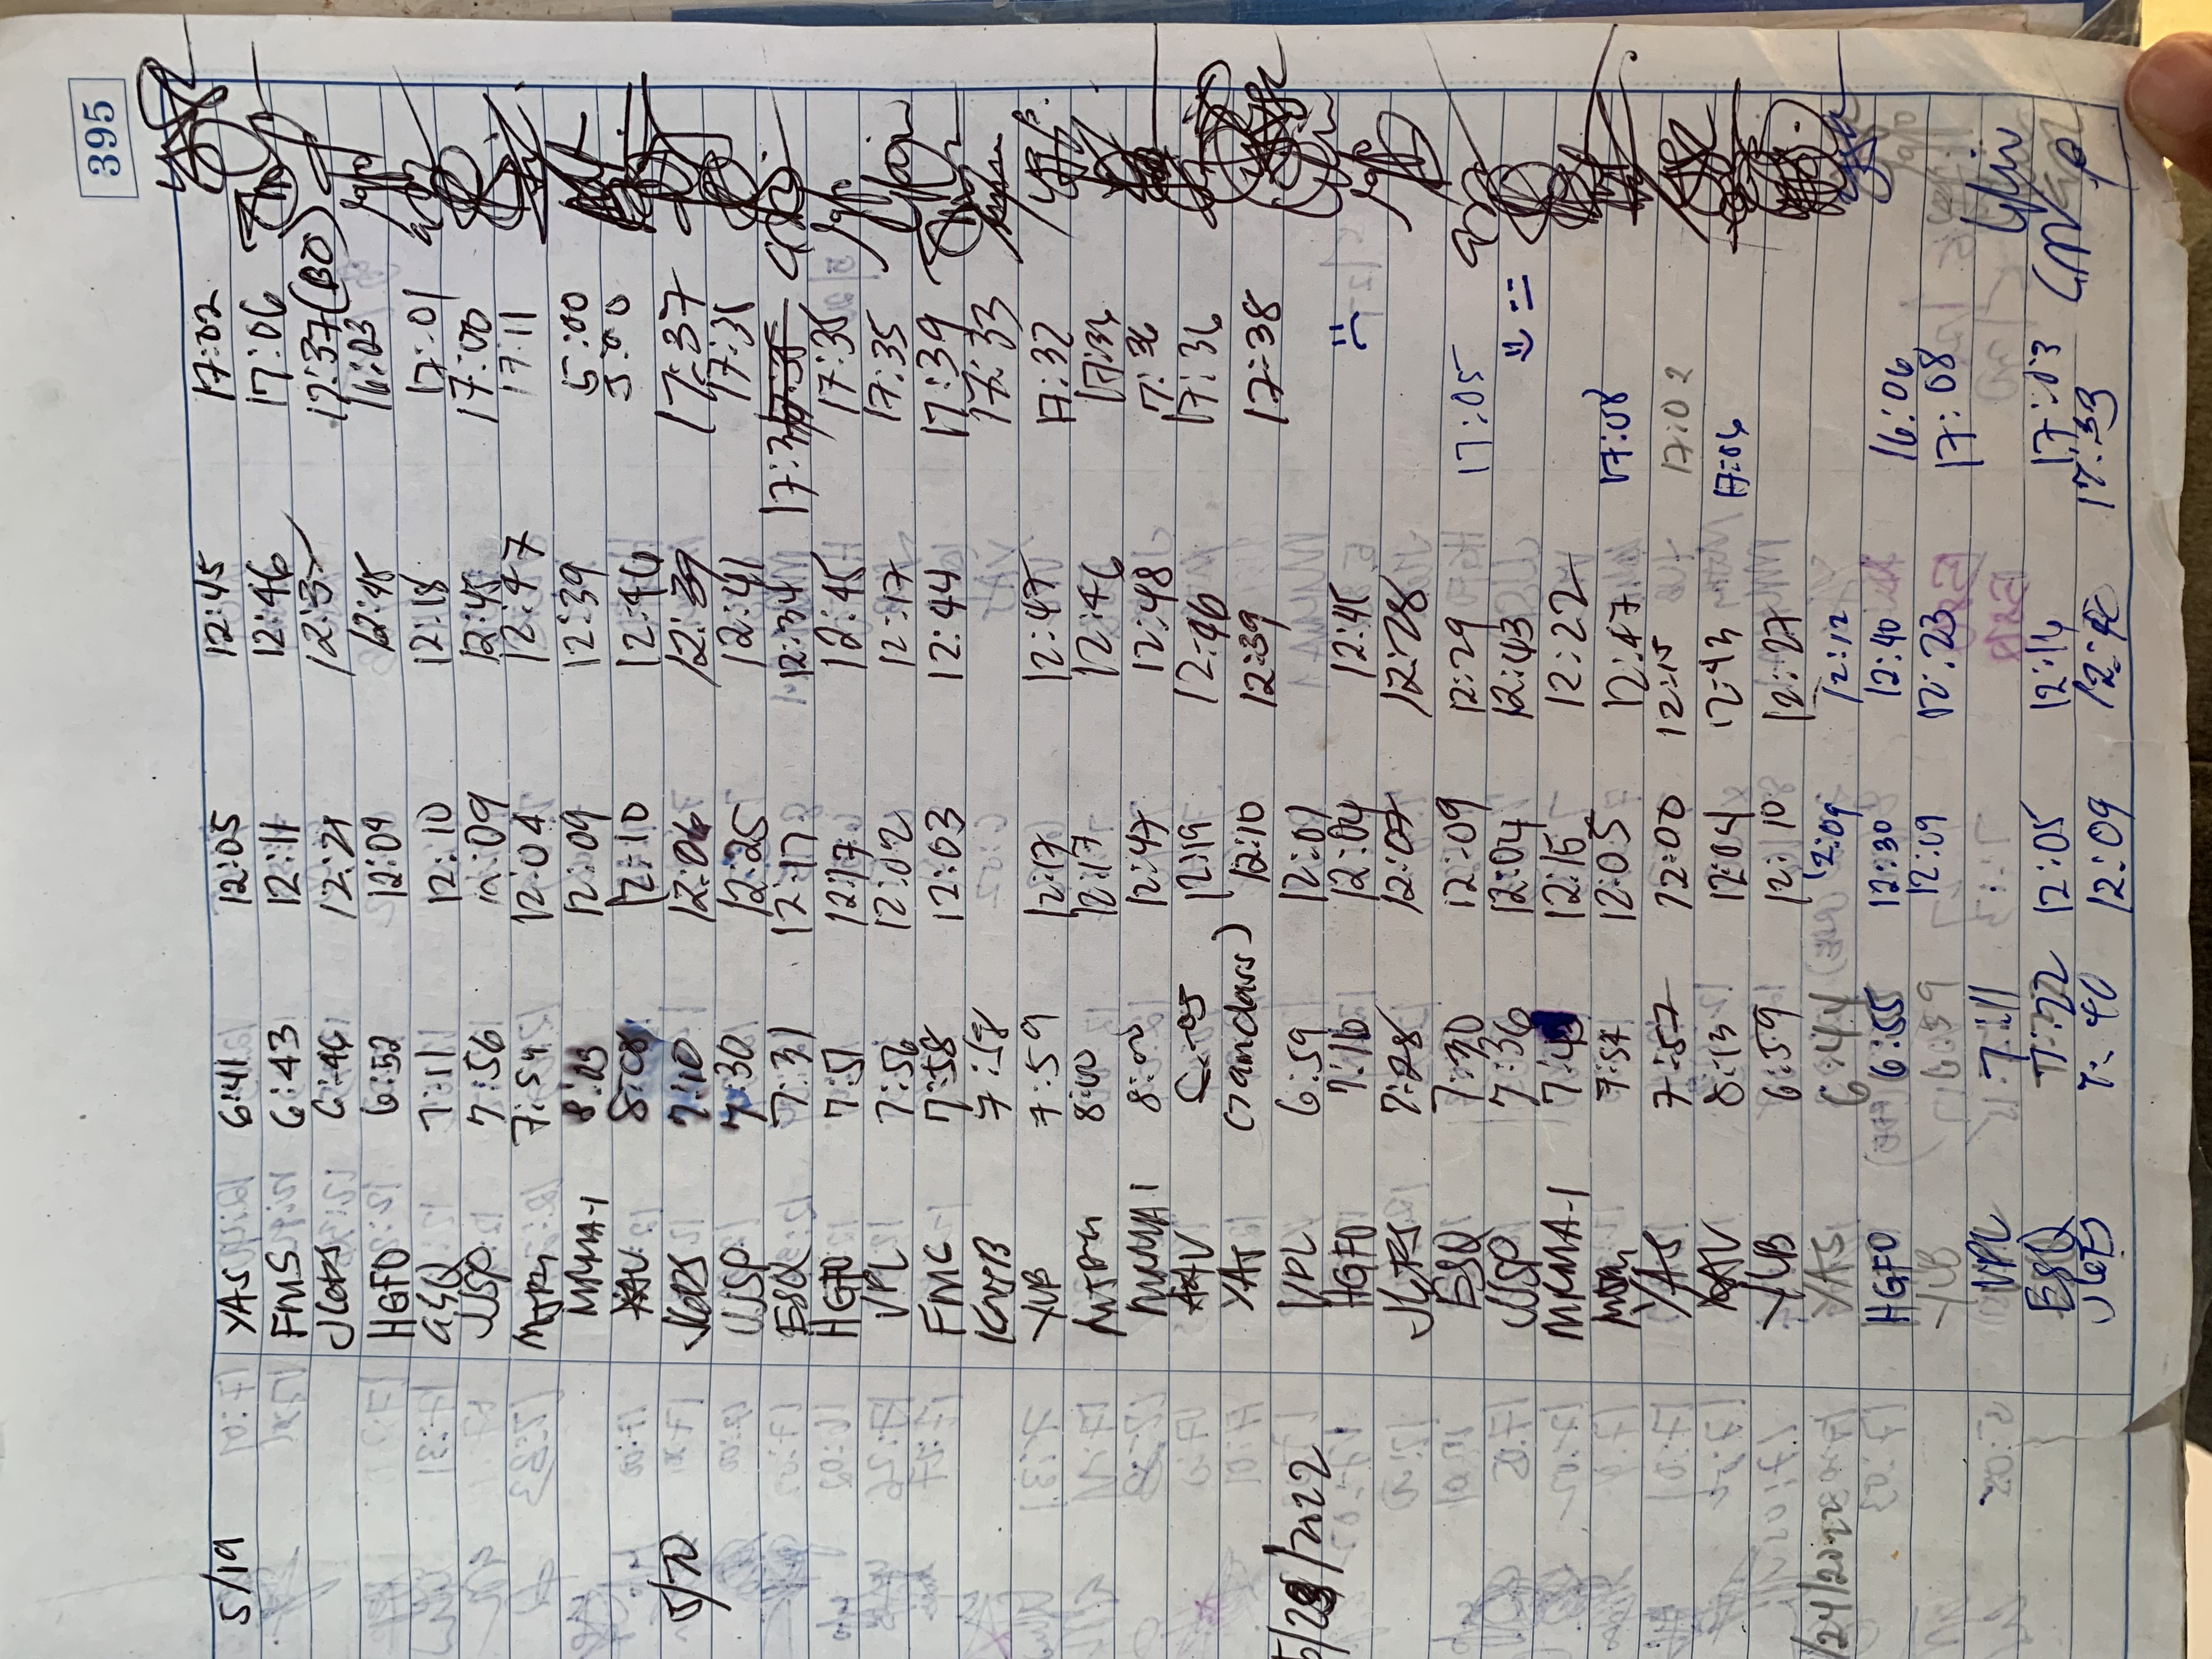 395
5/19 YAS 6:41 12:05 12:45 17:02
FMS 6:43 12:11 12:46 17:06
6:46 12:21 17:37 (BO)
HGFO 6:52 12:09 12:45 16:03
7:11 12:10 12:18 17:01
JJSP 7:56 12:09 12:45 17:00
7:54 12:04 12:47 17:11
MMMA-1 12:09 12:39 5:00
XAV 8:08 12:10 12:46 5:00
5/20 7:10 12:06 12:39 17:37
JJSP 7:30 12:25 12:41
ESQ 7:31 12:17 12:34
HGFO 7:51 12:17 12:45
VPL 7:56 12:02 12:17 17:35
FMC 7:58 12:03 12:44 17:39
7:58 17:33
YUB 7:59 12:17 12:47 17:32
8:00 12:17 12:46 17:36
MMMA1 8:00 12:47 12:48 17:36
XAV 12:19 12:46 17:36
YAT (Jamdars) 12:10 12:39 17:38
5/23/2022 VPL 6:59 12:01
HGFO 7:16 12:04 12:45
7:28 12:07 12:28
ESQ 7:30 12:09 12:29 17:05
JJSP 7:36 12:04 12:43
MMMA-1 7:43 12:15 12:22
7:57 12:05 12:47 17:08
YAS 7:57 12:00 12:15 17:02
XAV 8:13 12:04 12:43 17:06
YUB 6:59 12:10 12:27
/24/2022 YAS 6:44 12:09 12:12
HGFO 6:55 12:30 12:40 16:06
YUB 6:59 12:09 12:23 17:08
VPL 7:11
ESQ 7:22 12:05 12:16 17:03
7:40 12:09 12:42 17:33